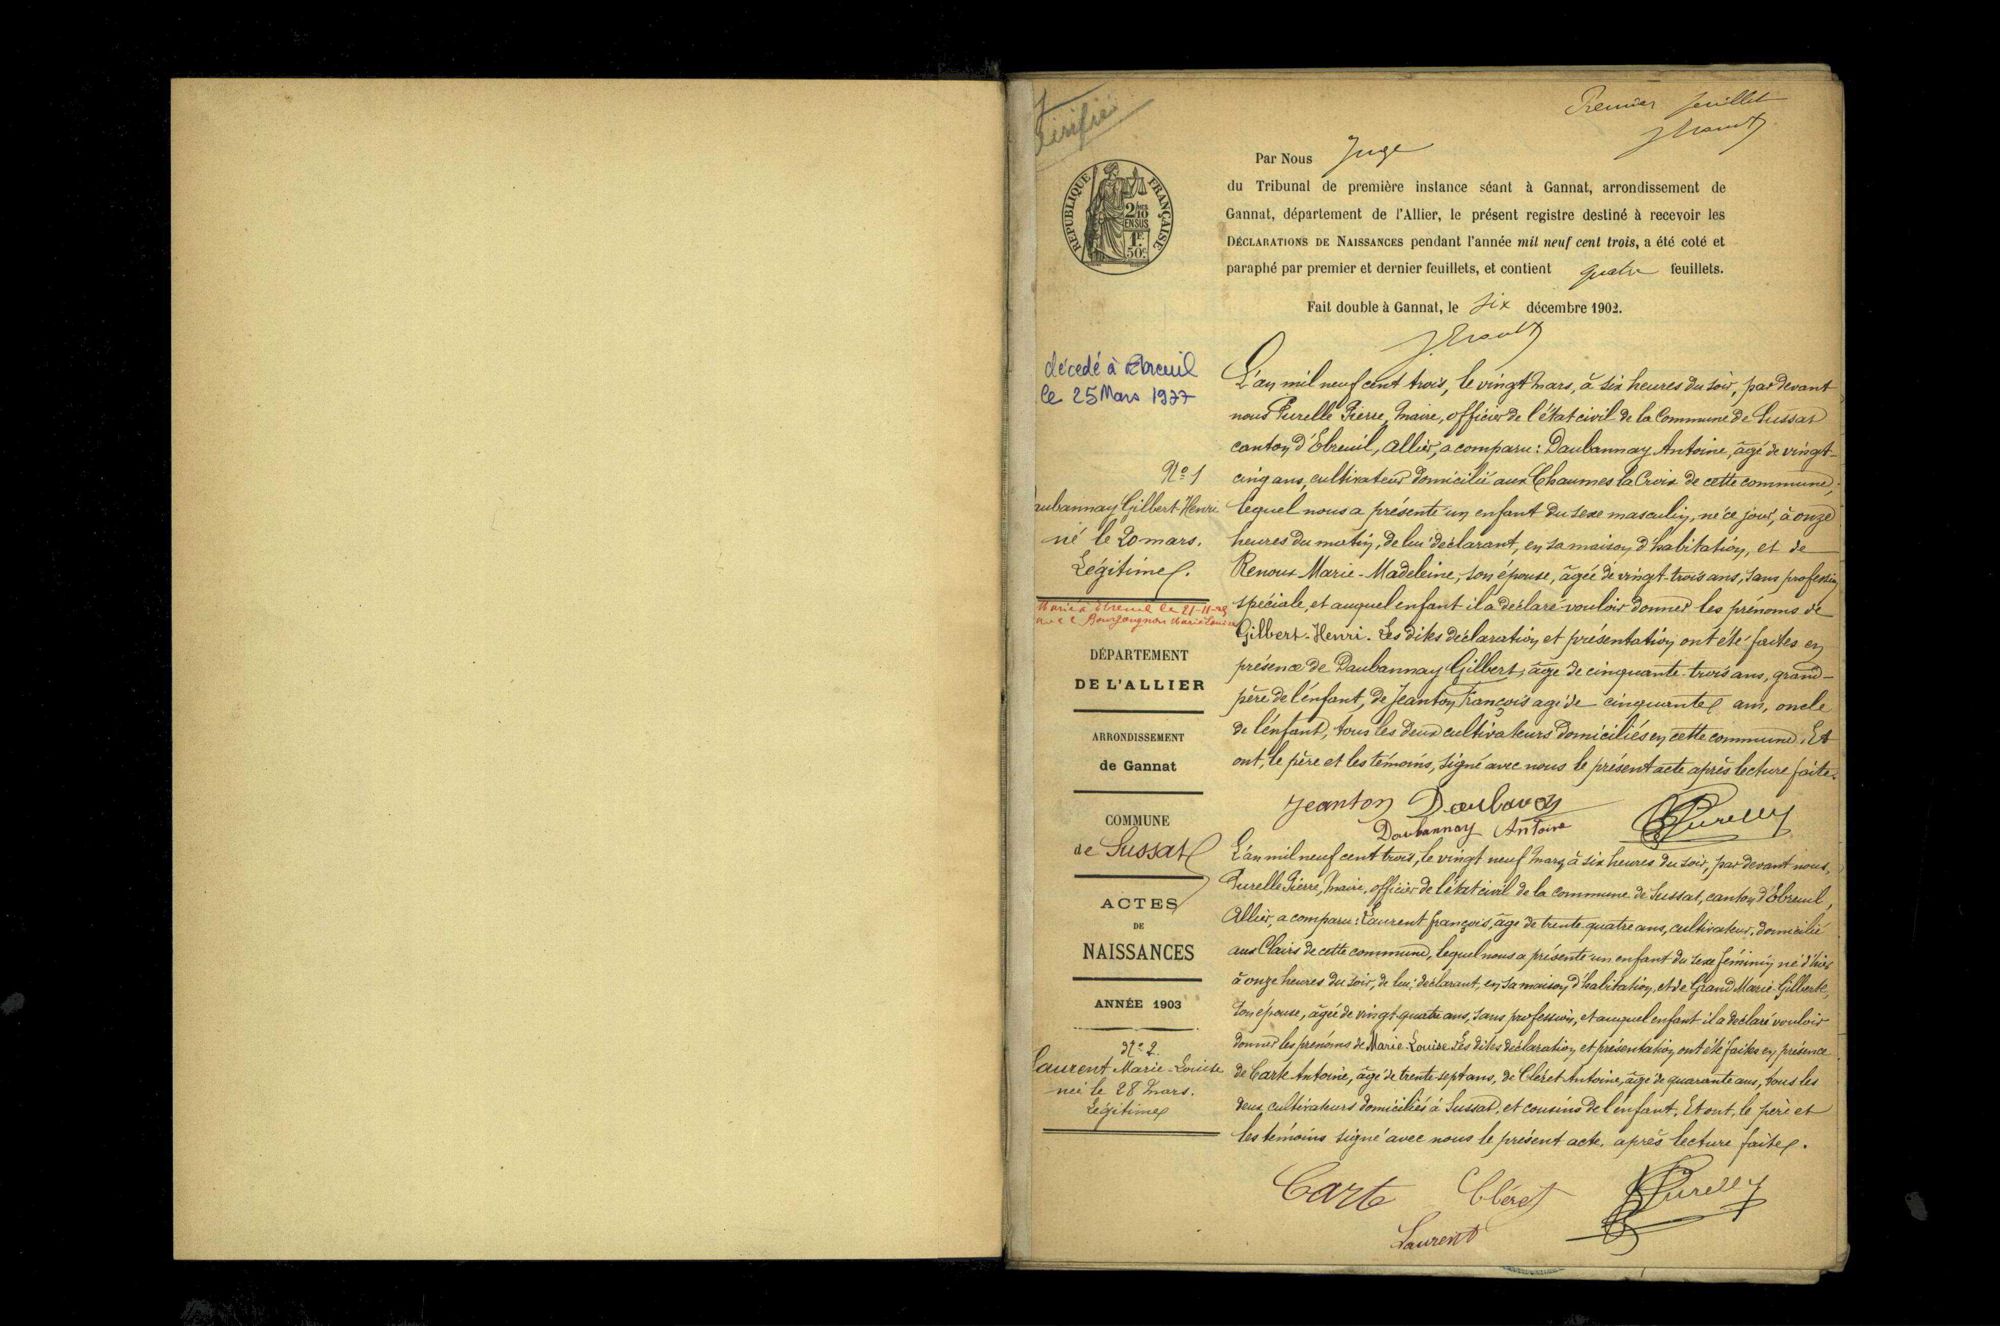 Vérifié
Premier feuillet
RÉPUBLIQUE FRANÇAISE
2/10
EN SUS
1F.
50c.
Par Nous Juge
du Tribunal de première instance séant à Gannat, arrondissement de
Gannat, département de l'Allier, le présent registre destiné à recevoir les
DÉCLARATIONS DE NAISSANCES pendant l'année mil neuf cent trois, a été coté et
paraphé par premier et dernier feuillets, et contient quatre feuillets.
Fait double à Gannat, le six décembre 1902.
décedé à Ebreuil
le 25 Mars 1977
Nº 1
aubannay Gilbert-Henri
né le 20 mars.
Légitime.
Marié à Ebreuil le 21-11-25
avec Bourgougnon Marie Louise
DÉPARTEMENT
DE L'ALLIER
ARRONDISSEMENT
de Gannat
COMMUNE
de Sussat
ACTES
DE
NAISSANCES
ANNÉE 1903
Nº 2.
Laurent Marie-Louise
née le 28 mars.
Légitime
L'an mil neuf cent trois, le vingt mars, à six heures du soir, par devant
nous Purelle Pierre, maire, officier de l'état civil de la Commune de Sussat
canton d'Ebreuil, Allier, a comparu: Daubannay Antoine, âgé de vingt-
cinq ans, cultivateur domicilié aux Chaumes la Croix de cette commune,
lequel nous a présenté un enfant du sexe masculin, né ce jour, à onze
heures du matin, de lui déclarant, en sa maison d'habitation, et de
Renoux Marie-Madeleine, son épouse, âgée de vingt-trois ans, sans profession
spéciale, et auquel enfant il a déclaré vouloir donner les prénoms de
Gilbert-Henri. Les dites déclaration et présentation ont été faites en
présence de Daubannay Gilbert, âgé de cinquante-trois ans, grand-
père de l'enfant, de Jeanton François agé de cinquante ans, oncle
de l'enfant, tous les deux cultivateurs domiciliés en cette commune. Et
ont, le père et les témoins, signé avec nous le présent acte après lecture faite.
Jeanton Daubanay
Daubannay Antoine Purelle
L'an mil neuf cent trois, le vingt neuf mars, à six heures du soir, par devant nous,
Purelle Pierre, maire, officier de l'état civil de la commune de Sussat, canton d'Ebreuil,
Allier, a comparu: Laurent françois, âgé de trente-quatre ans, cultivateur, domicilié
aux Clairs de cette commune, lequel nous a présenté un enfant du sexe féminin né d'hier
à onze heures du soir, de lui, déclarant, en sa maison d'habitation, et de Grand Marie-Gilberte,
son épouse, âgée de vingt-quatre ans, sans profession, et auquel enfant il a déclaré vouloir
donner les prénoms de Marie-Louise. Les dites déclaration et présentation ont été faites en présence
de Carte Antoine, âgé de trente-sept ans, de Cléret Antoine, âgé de quarante ans, tous les
deux cultivateurs domiciliés à Sussat, et cousins de l'enfant. Et ont, le père et
les témoins signé avec nous le présent acte, après lecture faite.
Carte Cléret Purelle
Laurent